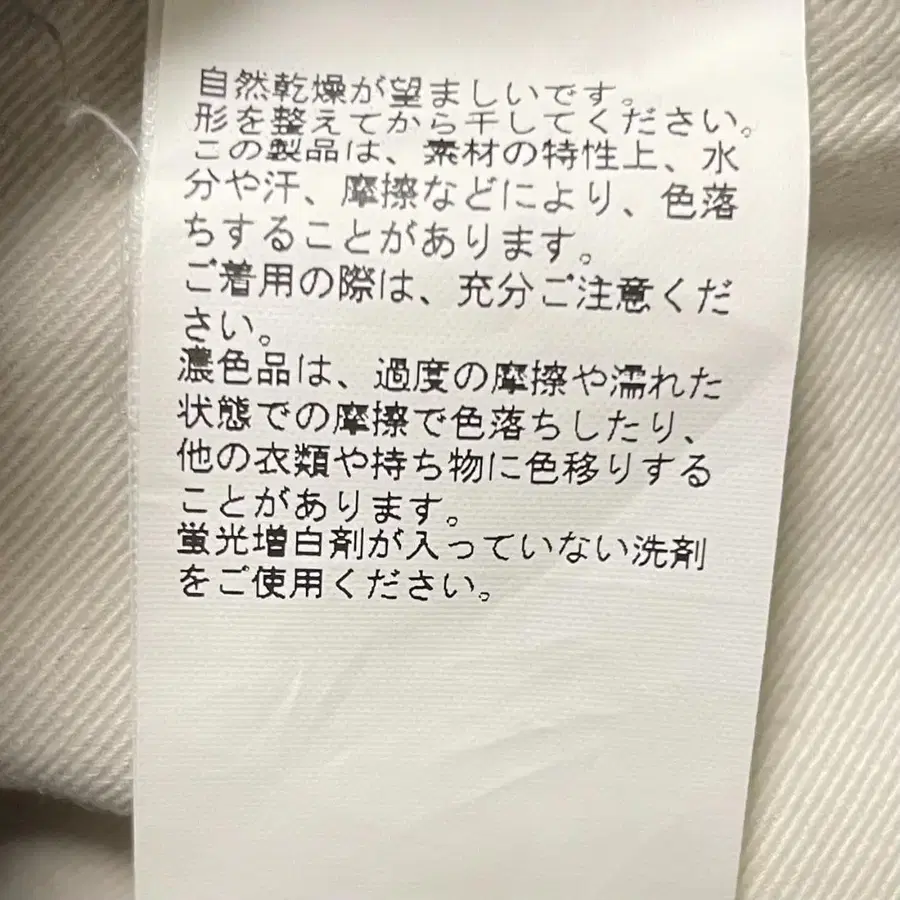 自然乾燥が望ましいです。
形を整えてから干してください。
この製品は、素材の特性上、水
分や汗、摩擦などにより、色落
ちすることがあります。
ご着用の際は、充分ご注意くだ
さい。
濃色品は、過度の摩擦や濡れた
状態での摩擦で色落ちしたり、
他の衣類や持ち物に色移りする
ことがあります。
蛍光増白剤が入っていない洗剤
をご使用ください。